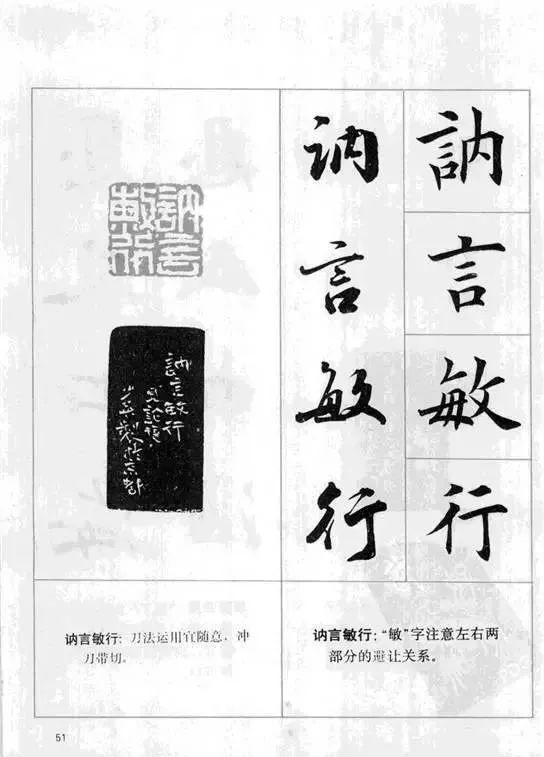 訥言敏行
訥言敏行
訥言敏行
訥言敏行
見論語
讷言敏行：刀法运用宜随意，冲
刀带切。
讷言敏行：“敏”字注意左右两
部分的避让关系。
51